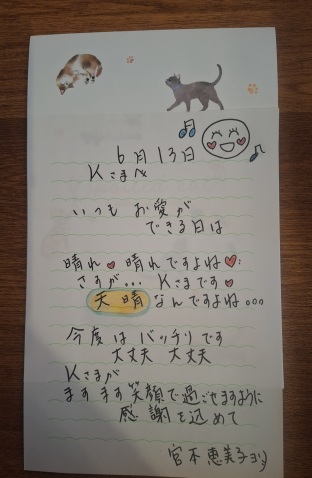 6月13日
Kさまへ
いつも お愛が
できる日は
晴れ♥ 晴れですよね♥
さすが... Kさまです♥
天晴なんですよね...
今度は バッチリです
大丈夫 大丈夫
Kさまが
ますます笑顔で過ごせますように
感謝を込めて
宮本恵美子ヨリ